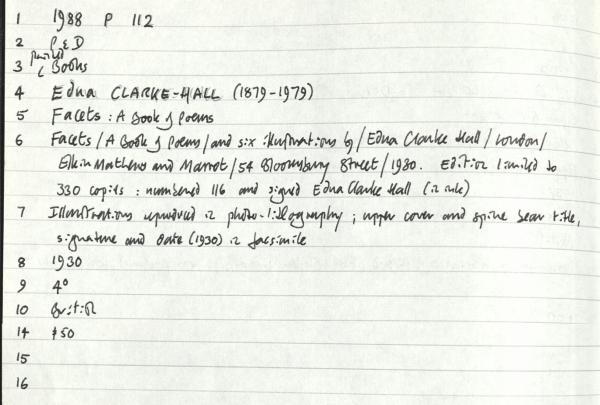 1 1988 P 112
2 P & D
printed
3 ( Books
4 Edna CLARKE-HALL (1879-1979)
5 Facets : A Book of Poems
6 Facets / A Book of Poems / and six illustrations by / Edna Clarke Hall / London /
Elkin Mathews and Marrot / 54 Bloomsbury Street / 1930. Edition limited to
330 copies : numbered 116 and signed Edna Clarke Hall (in ink)
7 Illustrations reproduced in photo-lithography ; upper cover and spine bear title,
signature and date (1930) in facsimile
8 1930
9 4°
10 British
14 £50
15
16